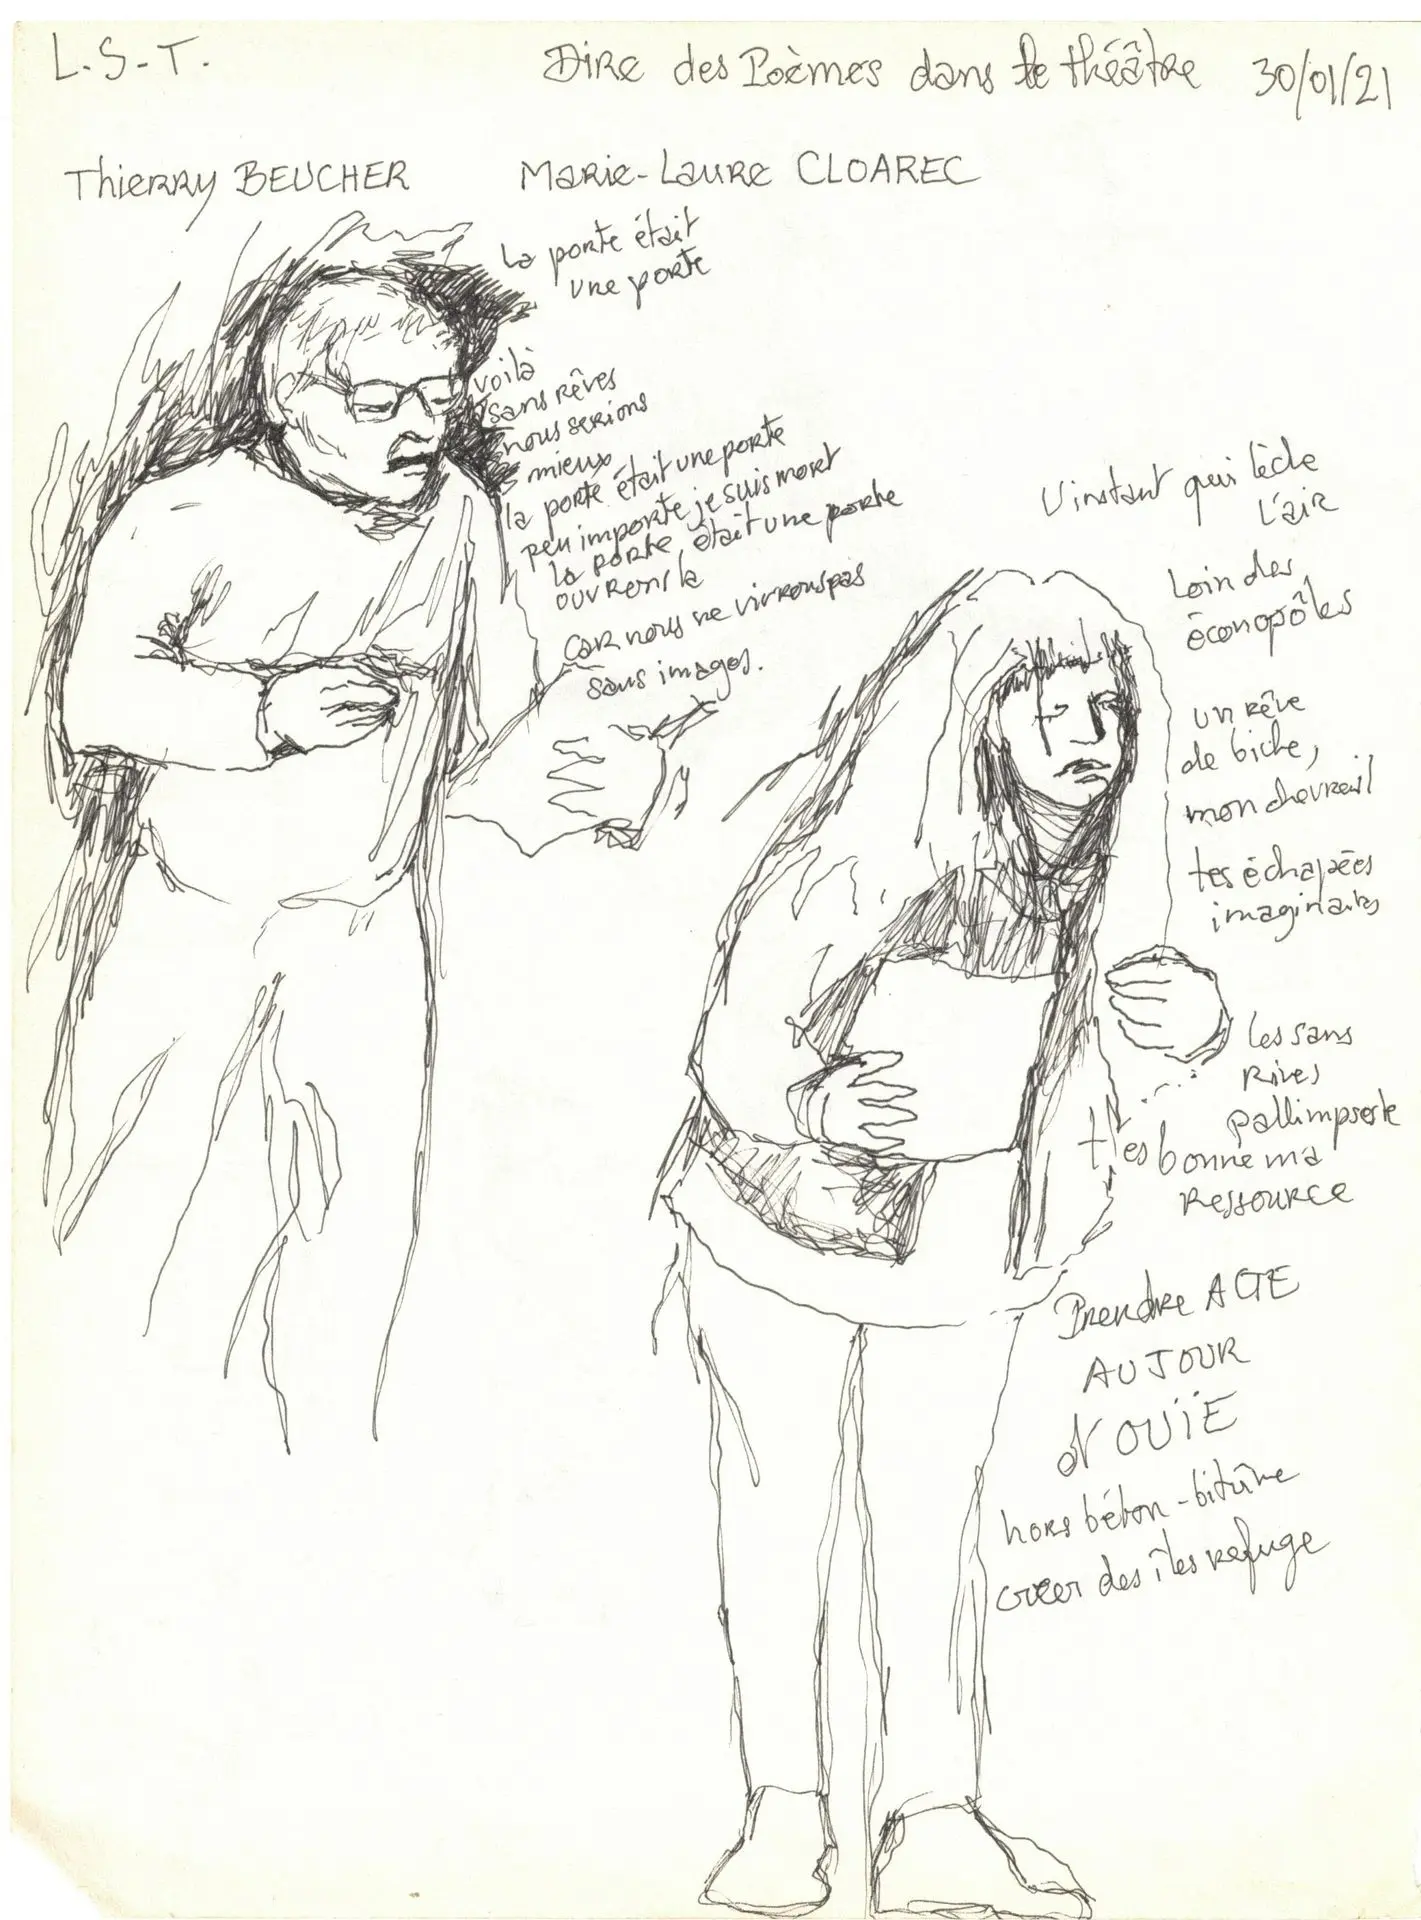 L.S.T.
Dire des Poèmes dans le théâtre 30/01/21
Thierry BEUCHER
Marie-Laure CLOAREC
La porte était
une porte
voilà
sans rêves
nous serions
mieux
la porte était une porte
peu importe je suis mort
la porte était une porte
ouvrons la
car nous ne vivrons pas
sans images.
L'instant qui lèche
l'air
Loin des
éconopôles
un rêve
de biche,
mon chevreuil
tes échapées
imaginaires
les sans
rives
pallimpseste
t'es bonne ma
ressource
Prendre ACTE
AUJOUR
d'OUÏE
hors béton-bitûme
créer des îles refuge